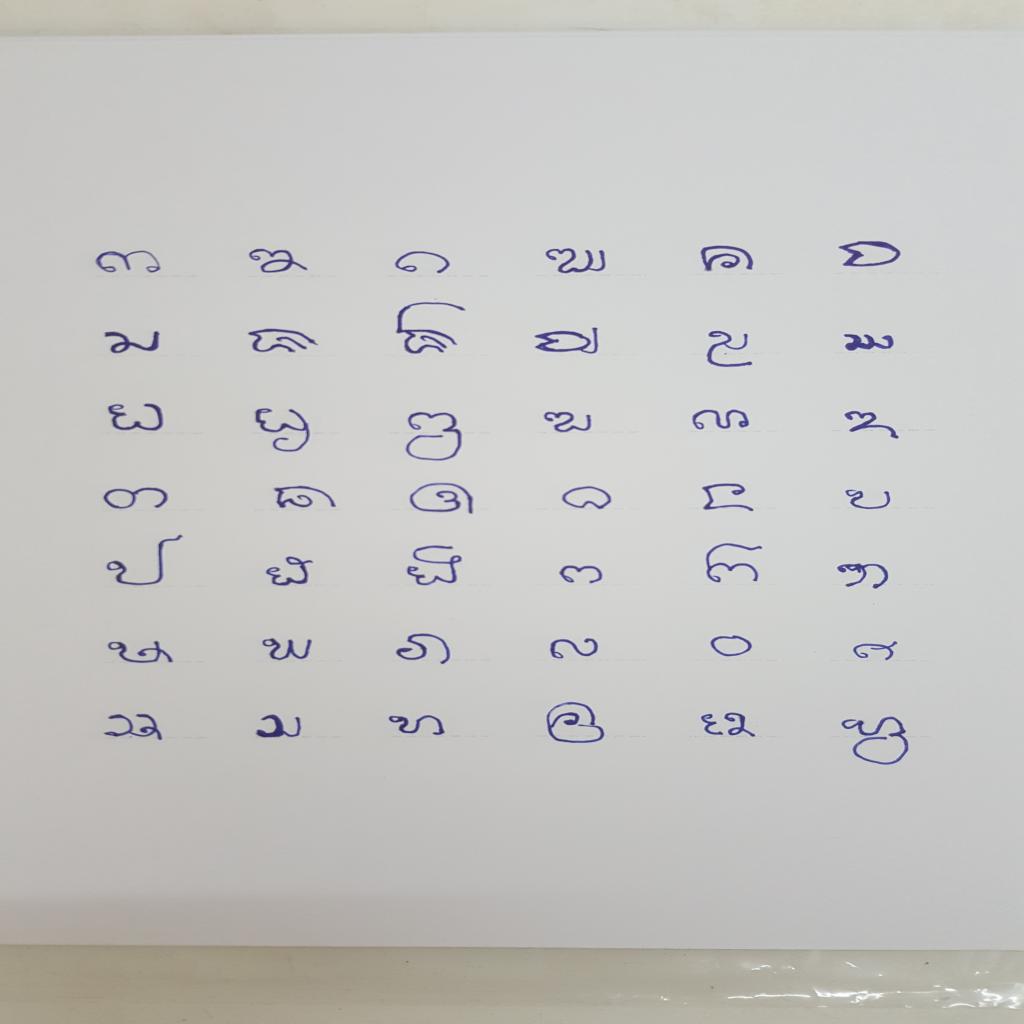 ᨠ ᨡ ᨣ ᨥ ᨦ ᨧ
ᨨ ᨩ ᨪ ᨫ ᨬ
ᨭ ᨮ ᨰ ᨱ
ᨲ ᨳ ᨴ ᨵ ᨶ ᨷ
ᨸ ᨹ ᨺ ᨻ ᨼ ᨽ
ᨾ ᨿ ᩁ ᩃ ᩅ ᩆ
ᩇ ᩈ ᩉ ᩊ ᩋ ᩌ